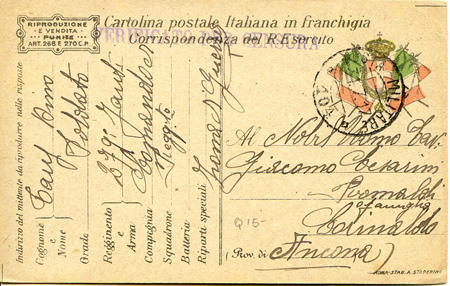 RIPRODUZIONE
E VENDITA
PUNITE
ART. 268 E 270 C.P.
Cartolina postale Italiana in franchigia
VERIFICATO PER CENSURA
Corrispondenza del R. Esercito
MILITARE
Indirizzo del mittente da riprodurre nelle risposte
Cognome e Nome
Grado Soldato
Reggimento e Arma
Compagnia
Squadrone
Batteria
Riparti speciali Zona di Guerra
Al Nobil Uomo Cav.
Giacomo Cesarini
Romaldi
e famiglia
Corinaldo
(Prov. di Ancona)
Q 15-
ROMA-STAB. A. STADERINI